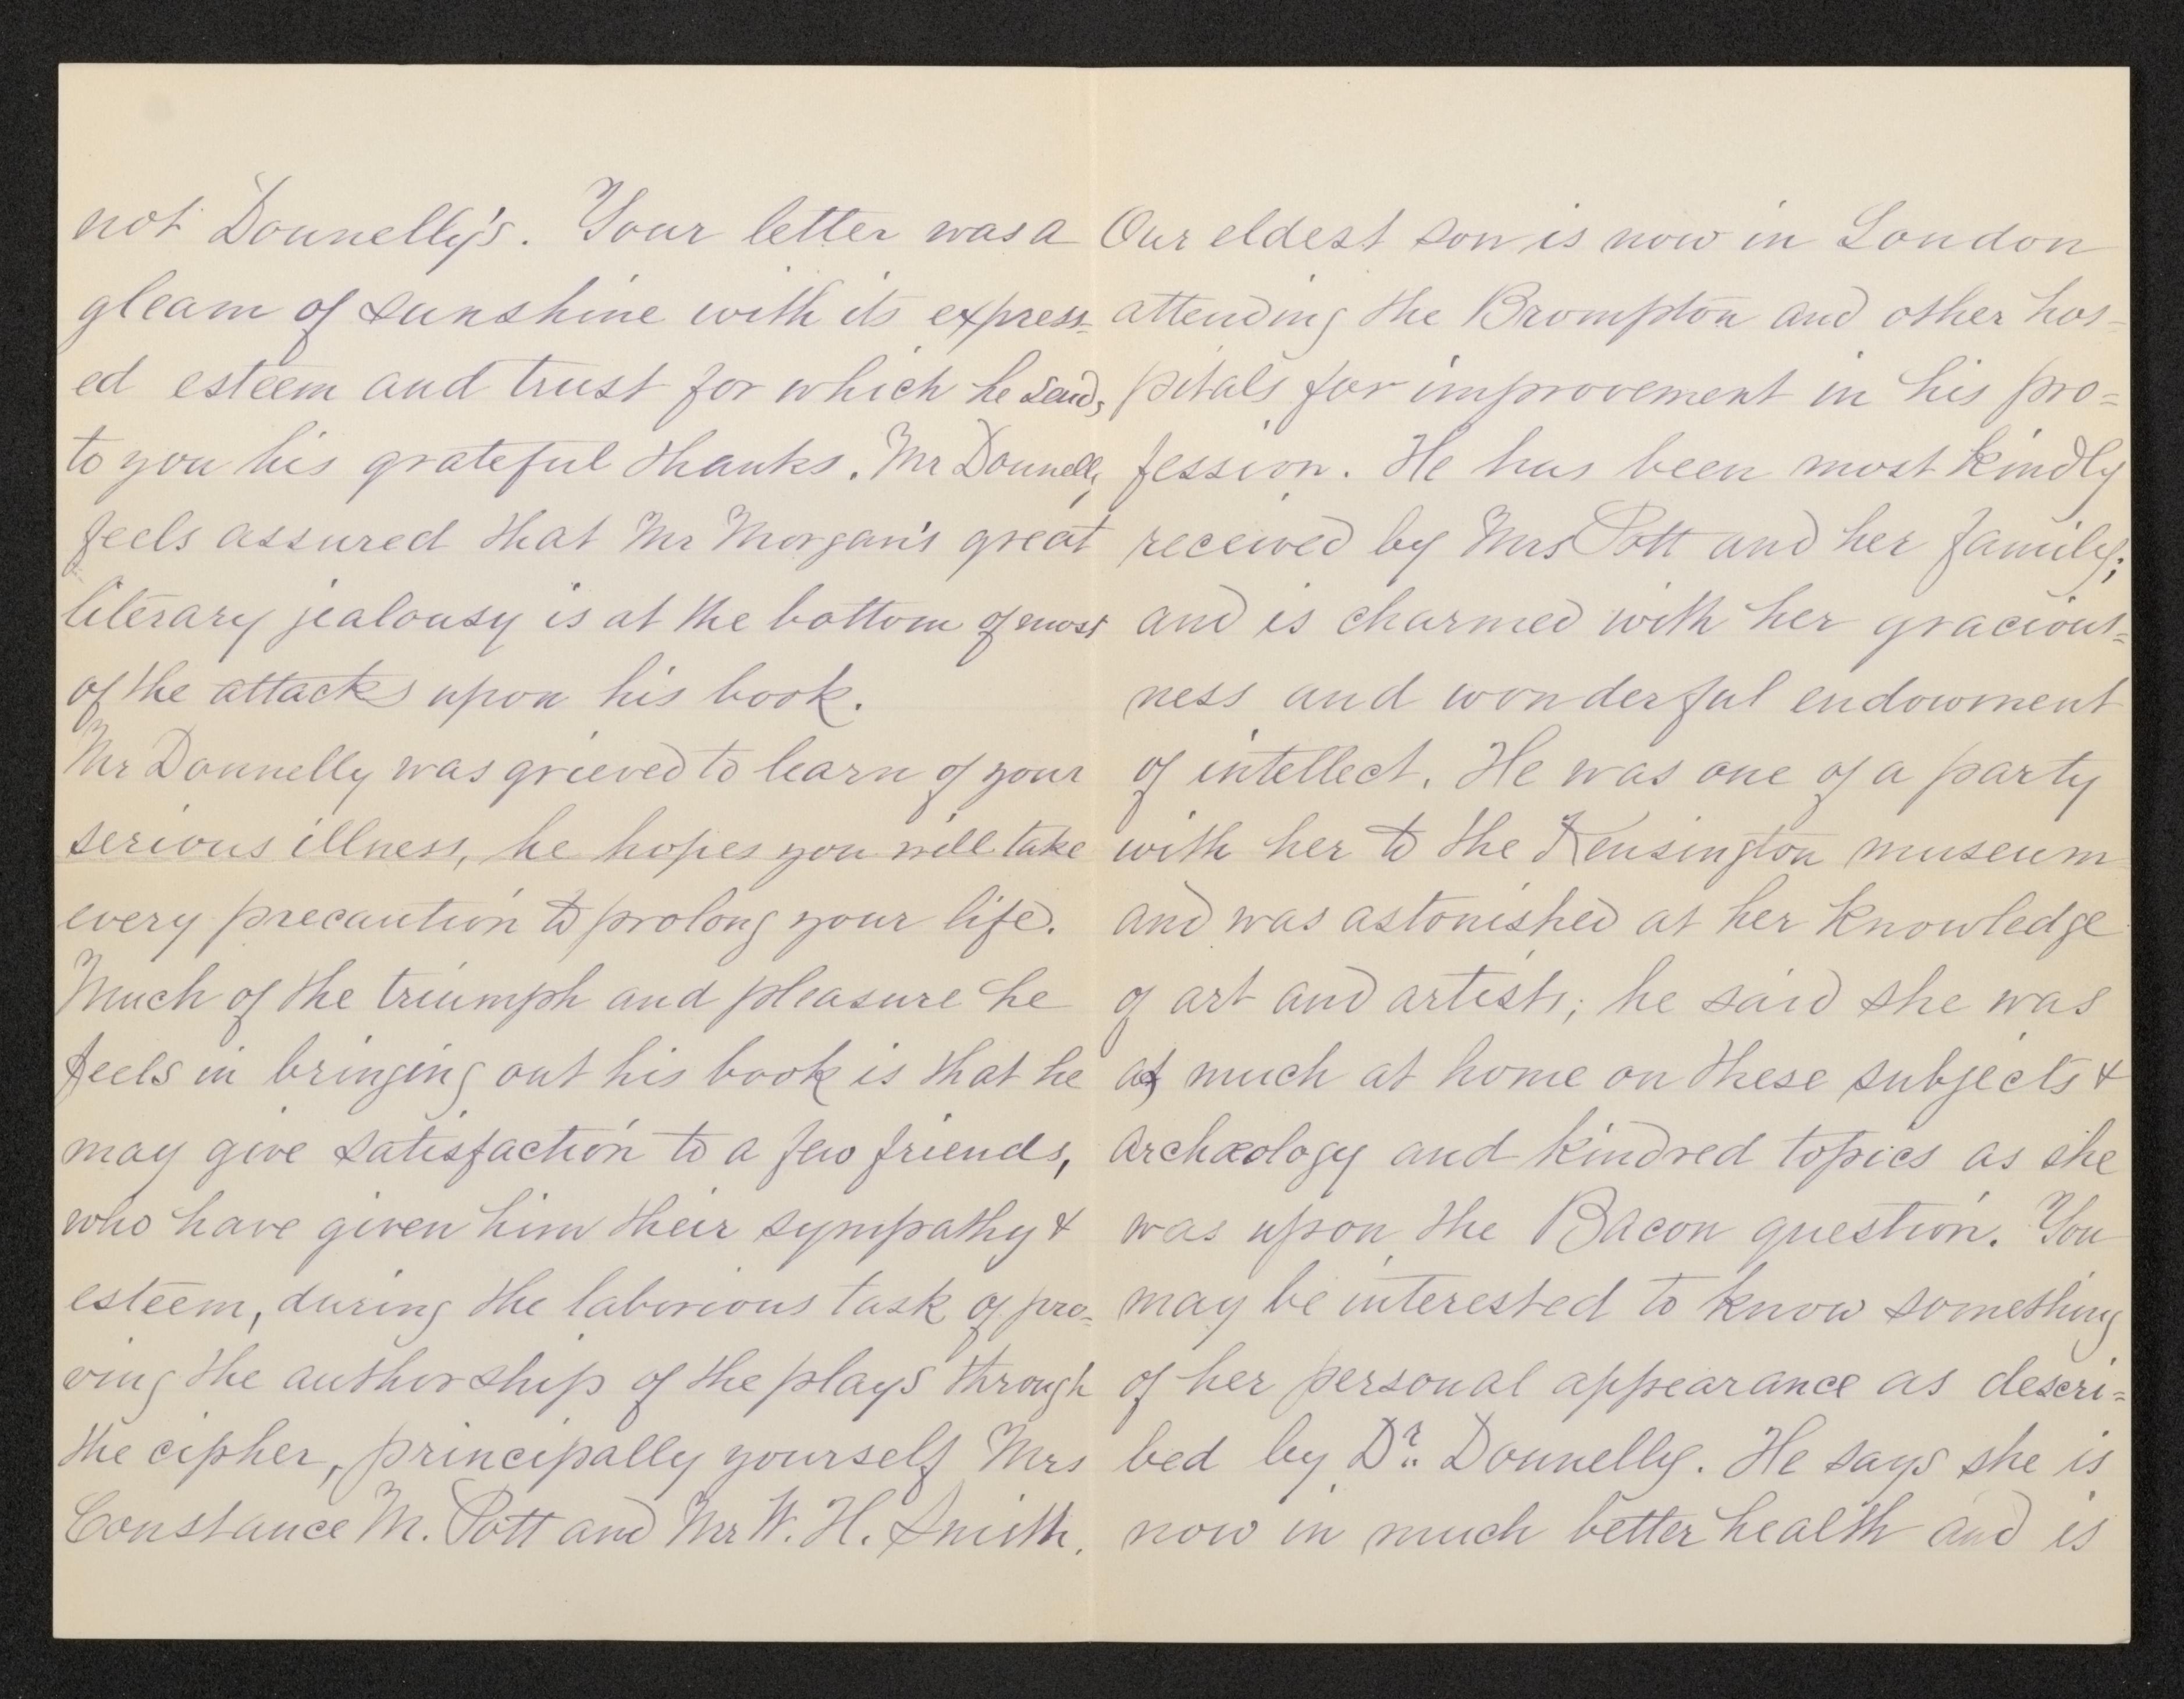 not Donnelly's. Your letter was a
gleam of sunshine with its express=
ed esteem and trust for which he sends
to you his grateful thanks. Mr Donnelly
feels assured that Mr Morgan's great
literary jealousy is at the bottom of most
of the attacks upon his book.
Mr Donnelly was grieved to learn of your
serious illness, he hopes you will take
every precaution to prolong your life.
Much of the triumph and pleasure he
feels in bringing out his book is that he
may give satisfaction to a few friends,
who have given him their sympathy &
esteem, during the laborious task of pro=
ving the authorship of the plays through
the cipher, principally yourself Mrs
Constance M. Pott and Mr W. H. Smith.
Our eldest son is now in London
attending the Brompton and other hos=
pitals for improvement in his pro=
fession. He has been most kindly
received by Mrs Pott and her family;
and is charmed with her gracious=
ness and wonderful endowment
of intellect. He was one of a party
with her to the Kensington museum
and was astonished at her knowledge
of art and artists; he said she was
as much at home on these subjects &
archæology and kindred topics as she
was upon the Bacon question. You
may be interested to know something
of her personal appearance as descri=
bed by Dr. Donnelly. He says she is
now in much better health and is